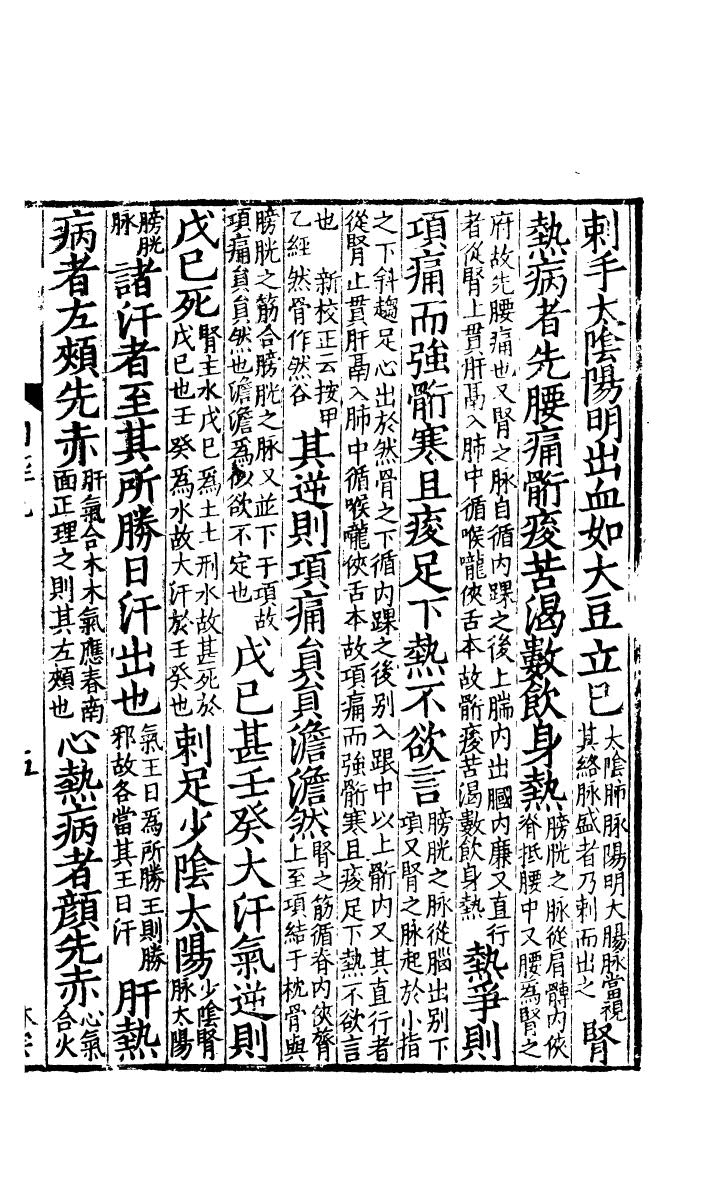 刺手太陰陽明出血如大豆立已太陰肺脉陽明大腸脉當視其絡脉盛者乃刺而出之腎
熱病者先腰痛䯒痠苦渴數飲身熱膀胱之脉從肩髆內俠脊抵腰中又腰爲腎之
府故先腰痛也又腎之脉自循內踝之後上腨內出膕內廉又直行者從腎上貫肝鬲入肺中循喉嚨俠舌本故䯒痠苦渴數飲身熱熱爭則
項痛而強䯒寒且痠足下熱不欲言膀胱之脉從腦出别下項又腎之脉起於小指
之下斜趨足心出於然骨之下循內踝之後别入跟中以上䯒內又其直行者從腎上貫肝鬲入肺中循喉嚨俠舌本故項痛而強䯒寒且痠足下熱不欲言
也 新校正云按甲乙經然骨作然谷其逆則項痛員員澹澹然腎之筋循脊內俠膂上至項結于枕骨與
膀胱之筋合膀胱之脉又並下于項故項痛員員然也澹澹爲似欲不定也戊己甚壬癸大汗氣逆則
戊己死腎主水戊己爲土土刑水故甚死於戊己也壬癸爲水故大汗於壬癸也刺足少陰太陽少陰腎脉太陽
膀胱脉諸汗者至其所勝日汗出也氣王日爲所勝王則勝邪故各當其王日汗肝熱
病者左頰先赤肝氣合木木氣應春南面正理之則其左頰也心熱病者顏先赤心氣合火
五